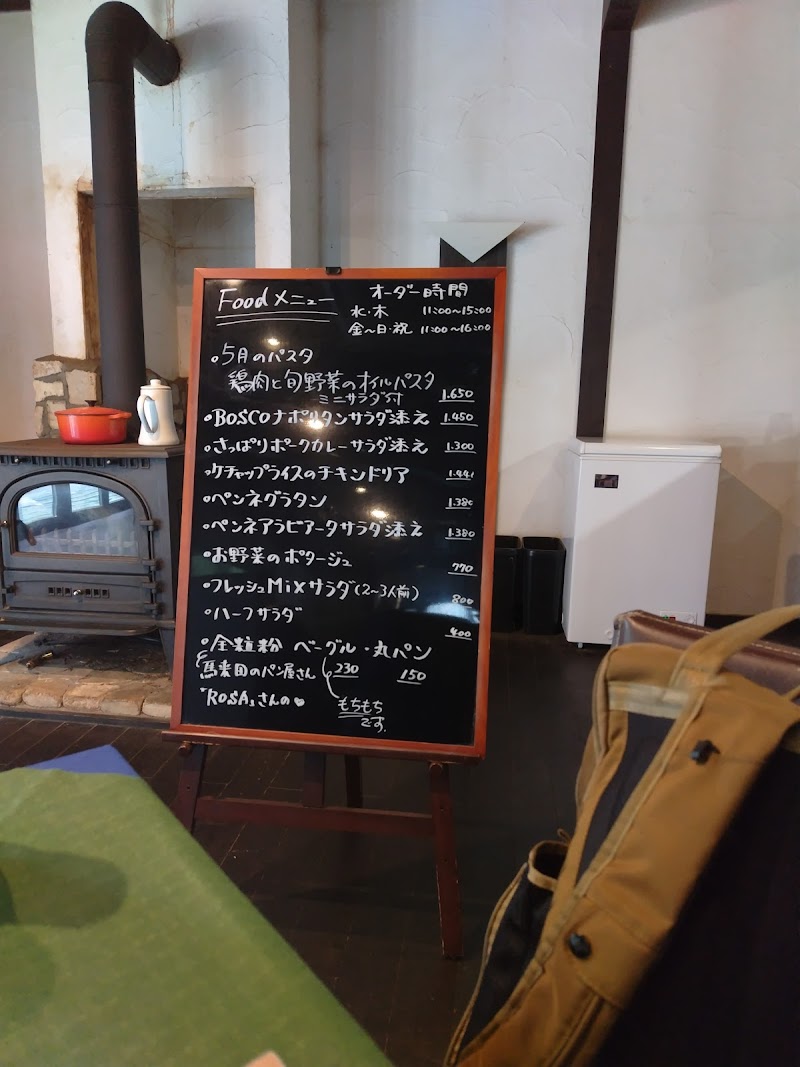 Foodメニュー
オーダー時間
水・木 11:00〜15:00
金〜日・祝 11:00〜16:00
。5月のパスタ
鶏肉と旬野菜のオイルパスタ
ミニサラダ付 1.650
。BOSCOナポリタンサラダ添え 1.450
。さっぱりポークカレーサラダ添え 1.300
。ケチャップライスのチキンドリア
。ペンネグラタン 1.380
。ペンネアラビアータサラダ添え 1.380
。お野菜のポタージュ 770
。フレッシュMixサラダ(2〜3人前) 800
。ハーフサラダ 400
。全粒粉 ベーグル・丸パン
馬来田のパン屋さん 230 150
「ROSA」さんの♥
もちもち
です.